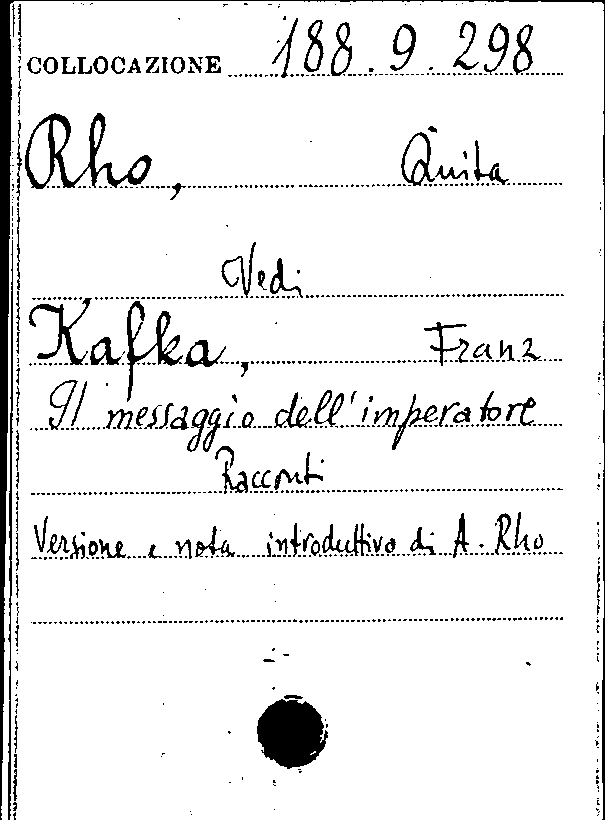 COLLOCAZIONE 188.9.298
Rho, Quita
Vedi
Kafka, Franz
Il messaggio dell'imperatore
Racconti
Versione e nota introduttiva di A. Rho